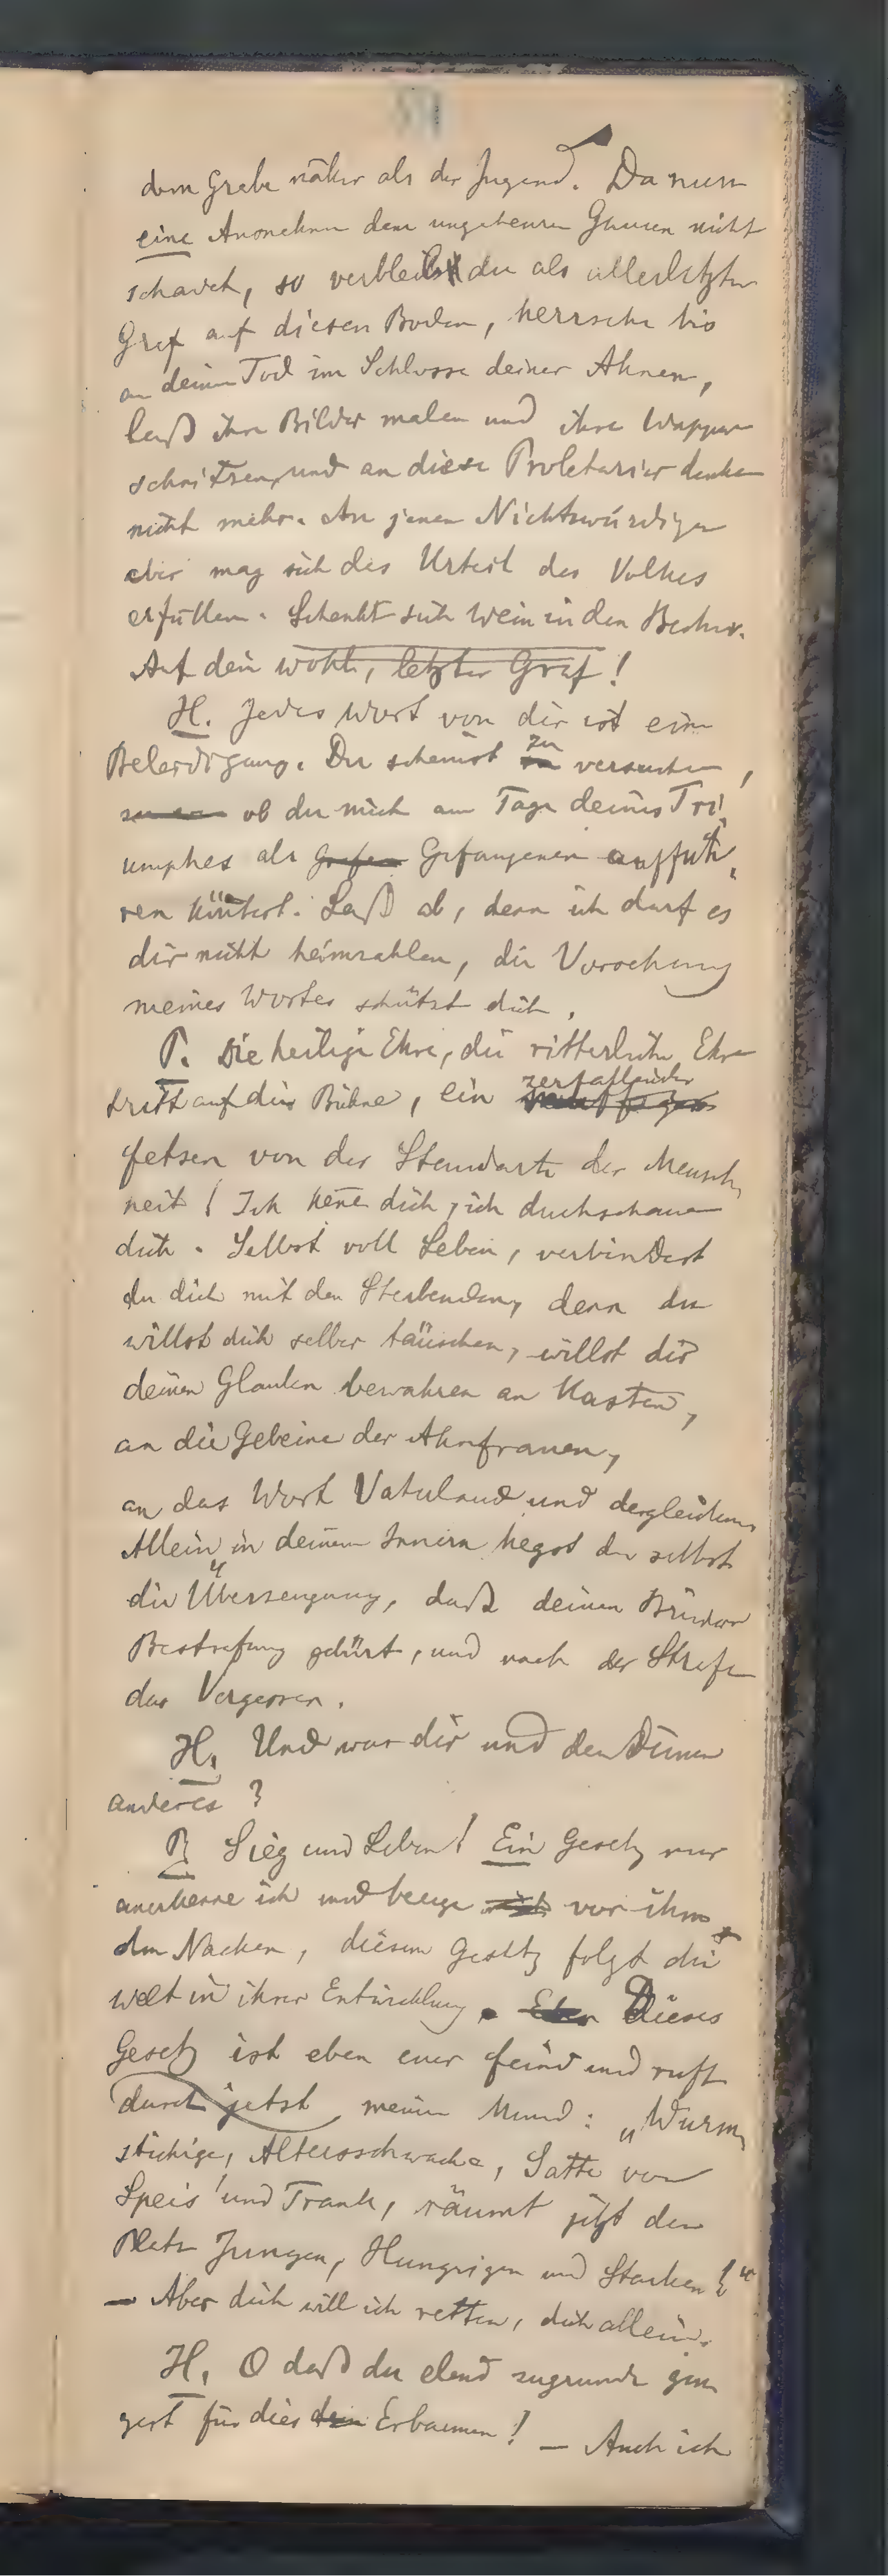 dem Grabe näher als der Jugend. Da nun
eine Ausnahme dem ungeheuren Ganzen nicht
schadet, so verbleibst du als allerletzter
Graf auf diesen Boden, herrsche bis
an deinen Tod im Schlosse deiner Ahnen,
laß ihre Bilder malen und ihre Wappen
schnitzen, und an diese Proletarier denke
nicht mehr. An jenen Nichtswürdigen
aber mag sich das Urteil des Volkes
erfüllen. Schenkt sich Wein in den Becher.
Auf dein Wohl, letzter Graf!
H. Jedes Wort von dir ist eine
Beleidigung. Du scheinst zu versuchen,
ob du mich am Tage deines Tri-
umphes als Grafen Gefangenen auffüh-
ren könntest. Laß ab, denn ich darf es
dir nicht heimzahlen, die Vorsehung
meines Wortes schützt dich.
P. Die heilige Ehre, die ritterliche Ehre
tritt auf die Bühne, ein zerfallender
Fetzen von der Standarte der Mensch-
heit! Ich kenne dich, ich duchschaue
dich. Selbst voll Leben, verbindest
du dich mit den Sterbenden, denn du
willst dich selber täuschen, willst dir
deinen Glauben bewahren an Kasten,
an die Gebeine der Ahnfrauen,
an das Wort Vaterland und dergleichen.
Allein in deinem Innern hegst du selbst
die Überzeugung, daß deinen Brüdern
Bestrafung gebürt, und nach der Strafe
das Vergessen.
H. Und was dir und den Deinen
anderes?
P. Sieg und Leben! Ein Gesetz nur
anerkenne ich und beuge vor ihm
den Nacken, diesem Gesetz folgt die
Welt in ihrer Entwicklung. Dieses
Gesetz ist eben euer Feind und ruft
durch jetzt meinen Mund: „Wurm-
stichige, Altersschwache, Satte von
Speis' und Trank, räumt jetzt den
Platz Jungen, Hungrigen und Starken!“
— Aber dich will ich retten, dich allein.
H. O daß du elend zugrunde gin-
gest für dies dein Erbarmen! — Auch ich